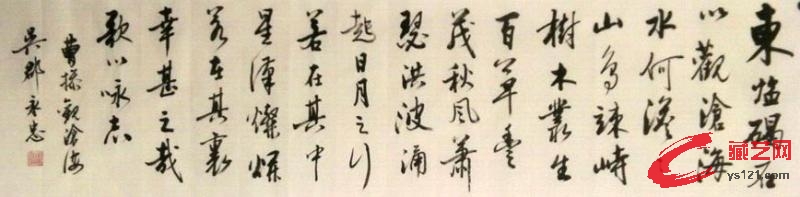 東臨碣石
以觀滄海
水何澹
山島竦峙
樹木叢生
百草豐
茂秋風蕭
瑟洪波涌
起日月之行
若在其中
星漢燦爛
若在其裏
幸甚之哉
歌以詠志
曹操觀滄海
吳郡永忠
藏艺网
ys121.com